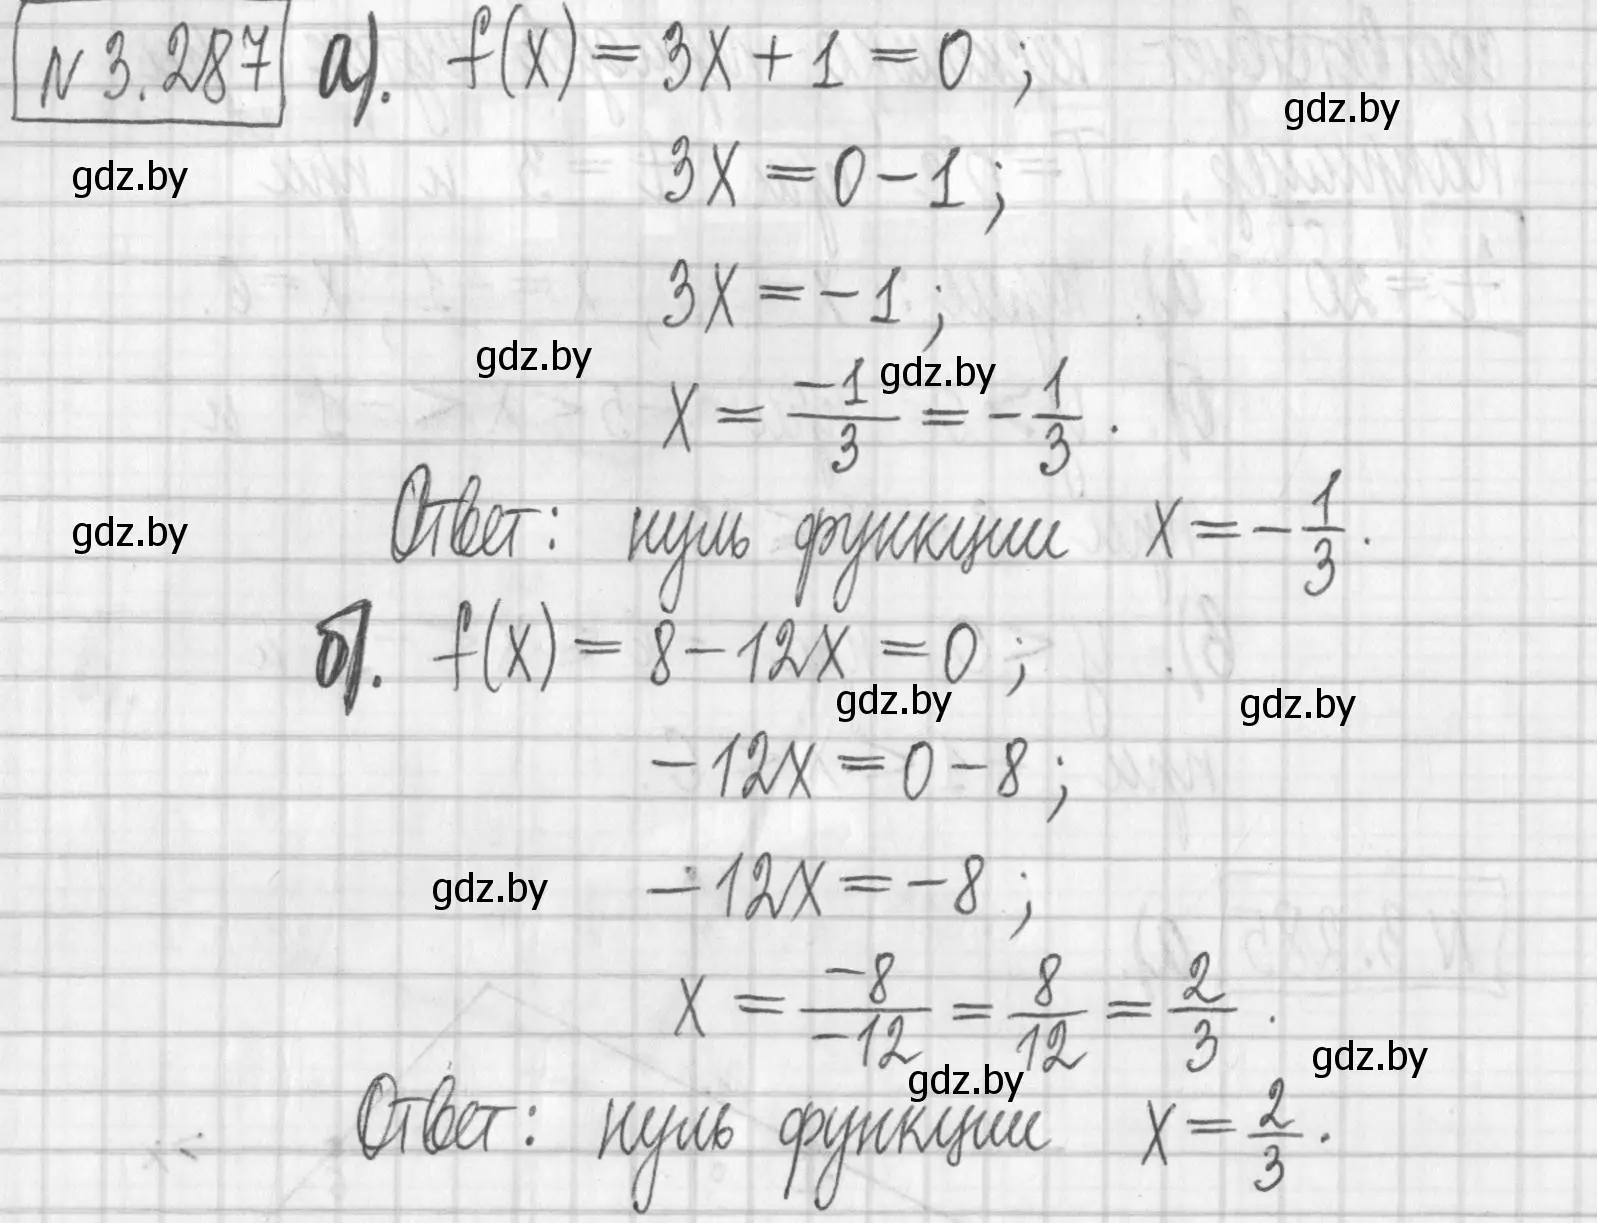 N 3.287 а). f(x) = 3x + 1 = 0 ;
gdz.by
3x = 0 - 1 ;
gdz.by
3x = -1 ;
gdz.by
x = -1/3 = -1/3 .
gdz.by
Ответ: нуль функции x = -1/3 .
gdz.by
б). f(x) = 8 - 12x = 0 ;
gdz.by
gdz.by
-12x = 0 - 8 ;
-12x = -8 ;
gdz.by
x = -8/-12 = 8/12 = 2/3 .
gdz.by
gdz.by
Ответ: нуль функции x = 2/3 .